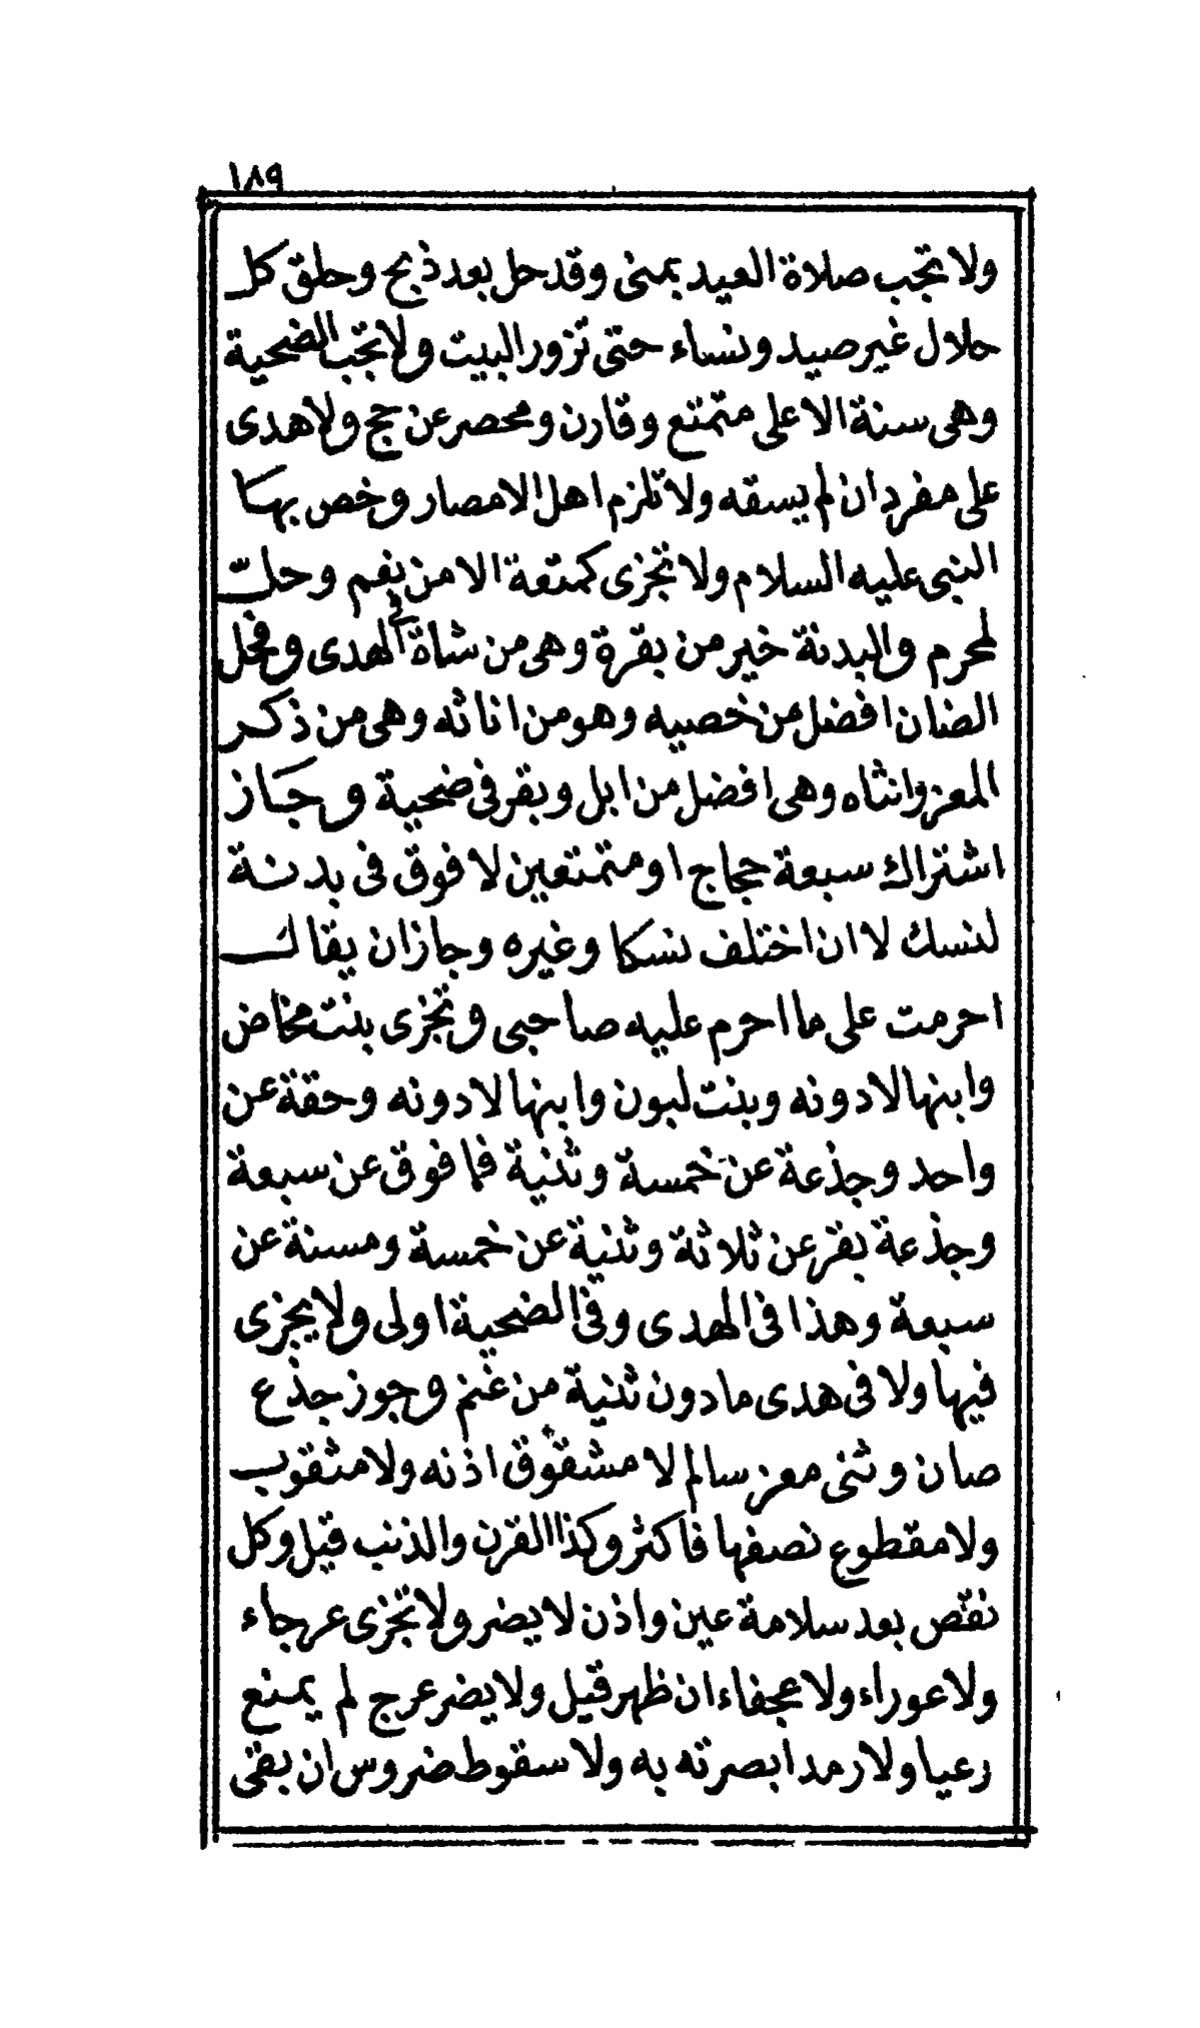 ١٨٩
ولا تجب صلاة العيد بمنى وقد حل بعد ذبح وحلق كل
حلال غير صيد ونساء حتى تزور البيت ولا تجب الضحية
وهى سنة الا على متمتع وقارن ومحصر عن حج ولا هدى
على مفرد ان لم يسقه ولا تلزم اهل الامصار وخص بها
النبى عليه السلام ولا تجزى كمتعة الا من نعم وحلت
لمحرم والبدنة خير من بقرة وهى من شاة فى الهدى وفحل
الضان افضل من خصيه وهو من اناثه وهى من ذكر
المعز وانثاه وهى افضل من ابل وبقر فى ضحية وجاز
اشتراك سبعة حجاج او متمتعين لا فوق فى بدنة
لنسك لا ان اختلف نسكا وغيره وجاز ان يقال
احرمت على ما احرم عليه صاحبى وتجزى بنت مخاض
وابنها لا دونه وبنت لبون وابنها لا دونه وحقة عن
واحد وجذعة عن خمسة وثنية فما فوق عن سبعة
وجذعة بقر عن ثلاثة وثنية عن خمسة ومسنة عن
سبعة وهذا فى الهدى وفى الضحية اولى ولا يجزى
فيها ولا فى هدى ما دون ثنية من غنم وجوز جذع
ضان وثنى معز سالم لا مشقوق اذنه ولا مثقوب
ولا مقطوع نصفها فاكثر وكذا القرن والذنب قيل وكل
نقص بعد سلامة عين واذن لا يضر ولا تجزى عرجاء
ولا عوراء ولا عجفاء ان ظهر قيل ولا يضر عرج لم يمنع
رعيا ولا رمد ابصرته به ولا سقوط ضروس ان بقى